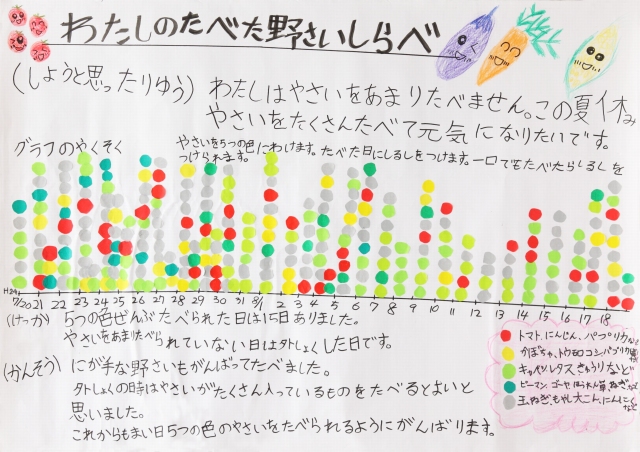 わたしのたべた野さいしらべ
(しようと思ったりゆう) わたしはやさいをあまりたべません。この夏休み
やさいをたくさんたべて元気になりたいです。
グラフのやくそく
やさいを5つの色にわけます。たべた日にしるしをつけます。一口でもたべたらしるしを
つけられます。
H24
7/20 21 22 23 24 25 26 27 28 29 30 31 8/1 2 3 4 5 6 7 8 9 10 11 12 13 14 15 16 17 18
(けっか) 5つの色ぜんぶたべられた日は15日ありました。
やさいをあまりたべられていない日は外しょくした日です。
(かんそう) にが手な野さいもがんばってたべました。
外しょくの時はやさいがたくさん入っているものをたべるとよいと
思いました。
これからもまい日5つの色のやさいをたべられるようにがんばります。
トマト、にんじん、パプリカなど
かぼちゃ、トウモロコシ、パプリカ
キャベツ、レタス、きゅうりなど
ピーマン、ゴーヤ、ほうれん草、ねぎ、など
玉ねぎ、もやし、大こん、にんにくなど